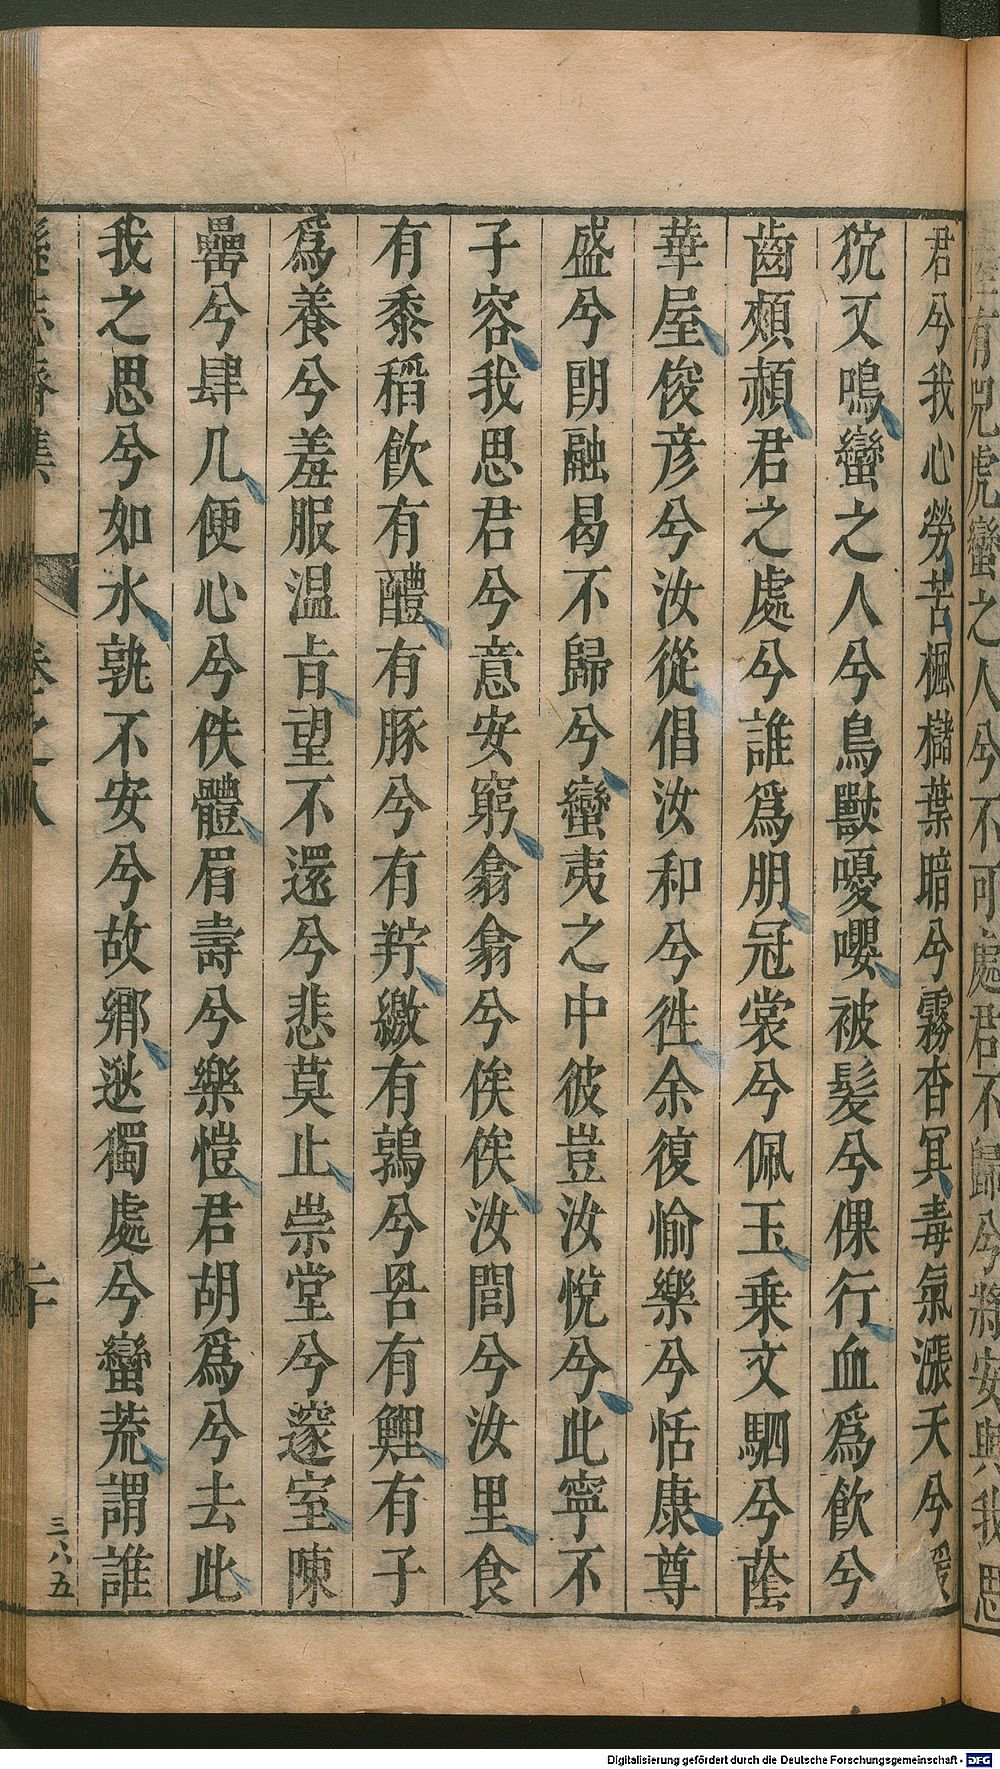 君兮我心勞苦楓櫧葉暗兮霧杳冥毒氣漲天兮猨
狖又鳴蠻之人兮鳥獸嚘嚶被髮兮倮行血爲飮兮
齒頰頳君之處兮誰爲朋冠裳兮佩玉乗文駟兮蔭
華屋俊彦兮汝從倡汝和兮徃余復愉樂兮恬康尊
盛兮朗融曷不歸兮蠻夷之中彼豈汝悅兮此寧不
子容我思君兮意安窮翕翕兮俟俟汝閭兮汝里食
有黍稻飮有醴有豚兮有羜繳有鶉兮罟有鯉有子
爲養兮羞服温㫖望不還兮悲莫止崇堂兮邃室陳
罍兮肆几便心兮佚體眉壽兮樂愷君胡爲兮去此
我之思兮如水孰不安兮故鄉逖獨處兮蠻荒謂誰
卷之八
二十
三八五
有兕虎蠻之人兮不可處君不歸兮將安與我思
Digitalisierung gefördert durch die Deutsche Forschungsgemeinschaft - DFG